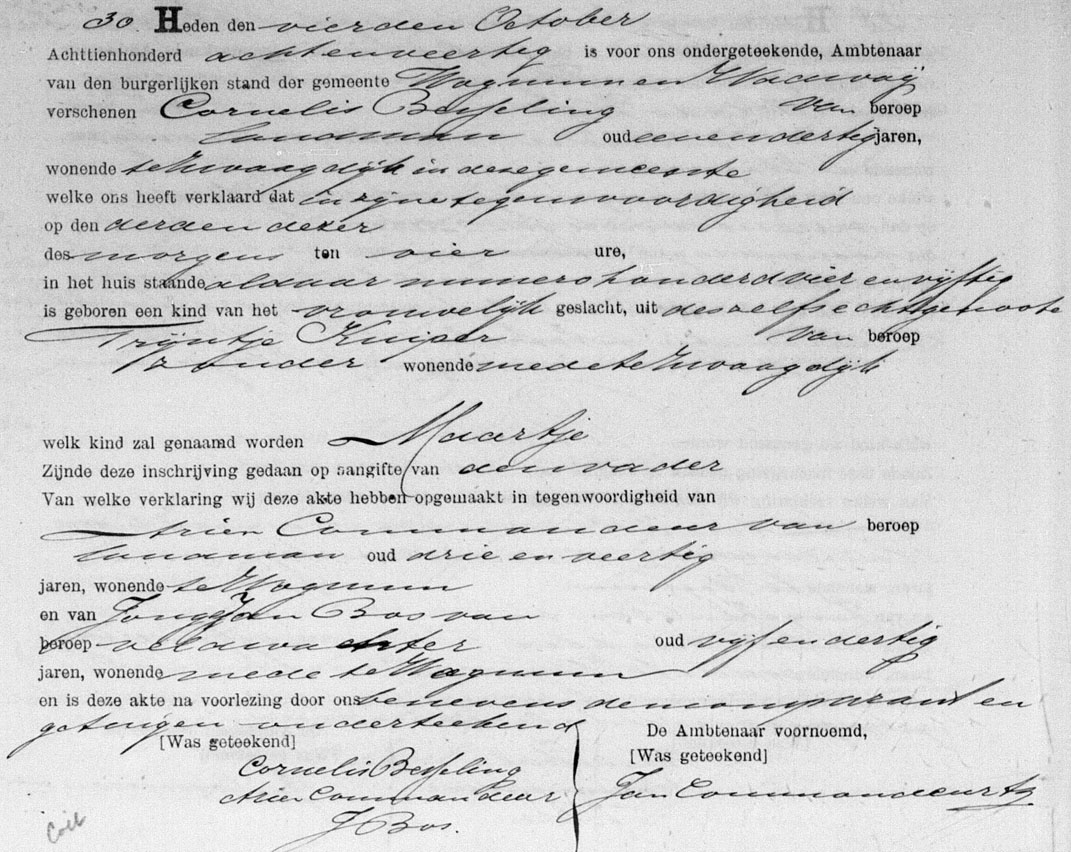 30. Heden den vierden October
Achttienhonderd achtenveertig is voor ons ondergeteekende, Ambtenaar
van den burgerlijken stand der gemeente Wognum en Wadway
verschenen Cornelis Besseling van beroep
landman oud eenendertig jaren,
wonende te Zwaagdijk in deze gemeente
welke ons heeft verklaard dat in zijne tegenwoordigheid
op den derden dezer
des morgens ten vier ure,
in het huis staande aldaar numero honderd vier en vijftig
is geboren een kind van het vrouwelijk geslacht, uit deszelfs echtgenoote
Trijntje Kuiper van beroep
zonder wonende mede te Zwaagdijk
welk kind zal genaamd worden Maartje
Zijnde deze inschrijving gedaan op aangifte van den vader
Van welke verklaring wij deze akte hebben opgemaakt in tegenwoordigheid van
Arien Commandeur van beroep
landman oud drie en veertig
jaren, wonende te Wognum
en van Jong Jan Bos van
beroep veldwachter oud vijf en dertig
jaren, wonende mede te Wognum
en is deze akte na voorlezing door ons benevens den comparant en
getuigen onderteekend
[Was geteekend] De Ambtenaar voornoemd,
[Was geteekend]
Cornelis Besseling
Arien Commandeur Jan Commandeur Az
J Bos.
Coll